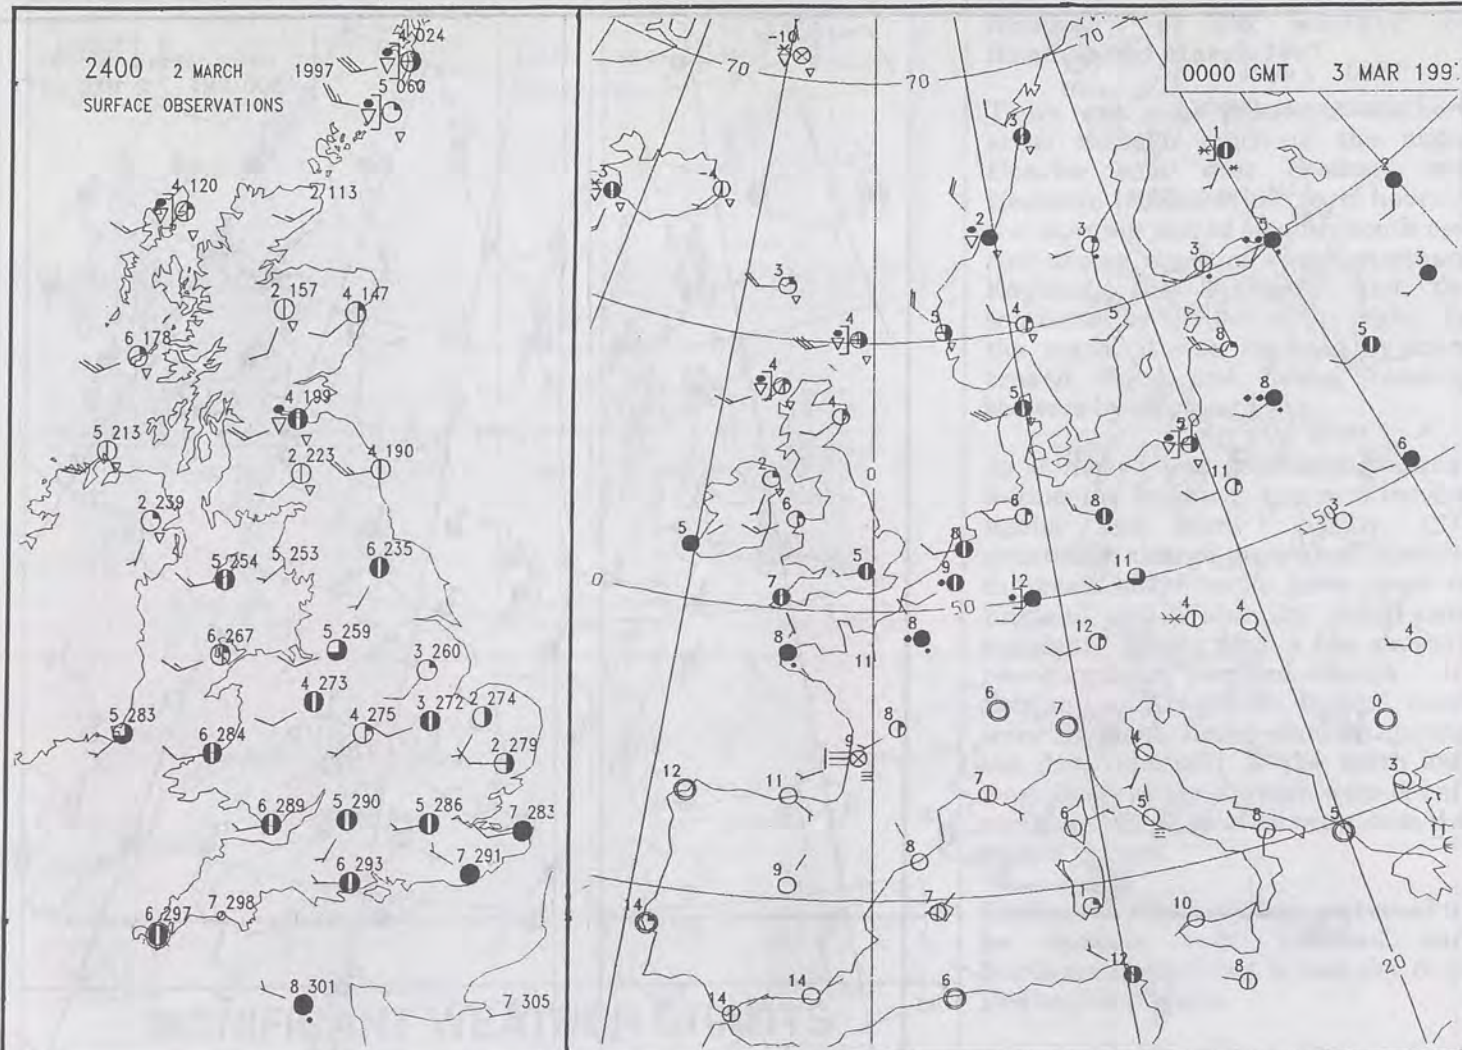 2400 2 MARCH 1997
SURFACE OBSERVATIONS
4 024
5 060
4 120
2 113
2 157
4 147
6 178
4 199
5 213
2 223
4 190
2 239
5 254
5 253
6 235
6 267
5 259
3 260
4 273
5 283
4 275
3 272
2 274
6 284
2 279
6 289
5 290
5 286
7 283
7 291
6 293
6 297
7 298
8 301
7 305
0000 GMT 3 MAR 199
-10
70
70
70
3
1
2
3
-4
2
3
5
3
3
3
4
5
4
5
8
4
5
8
2
0
5
6
11
6
6
8
3
50
5
8
0
5
9
11
7
50
12
8
12
4
4
4
11
6
7
8
0
9
4
3
12
11
7
6
5
8
5
11
8
9
14
7
10
12
8
20
14
14
6